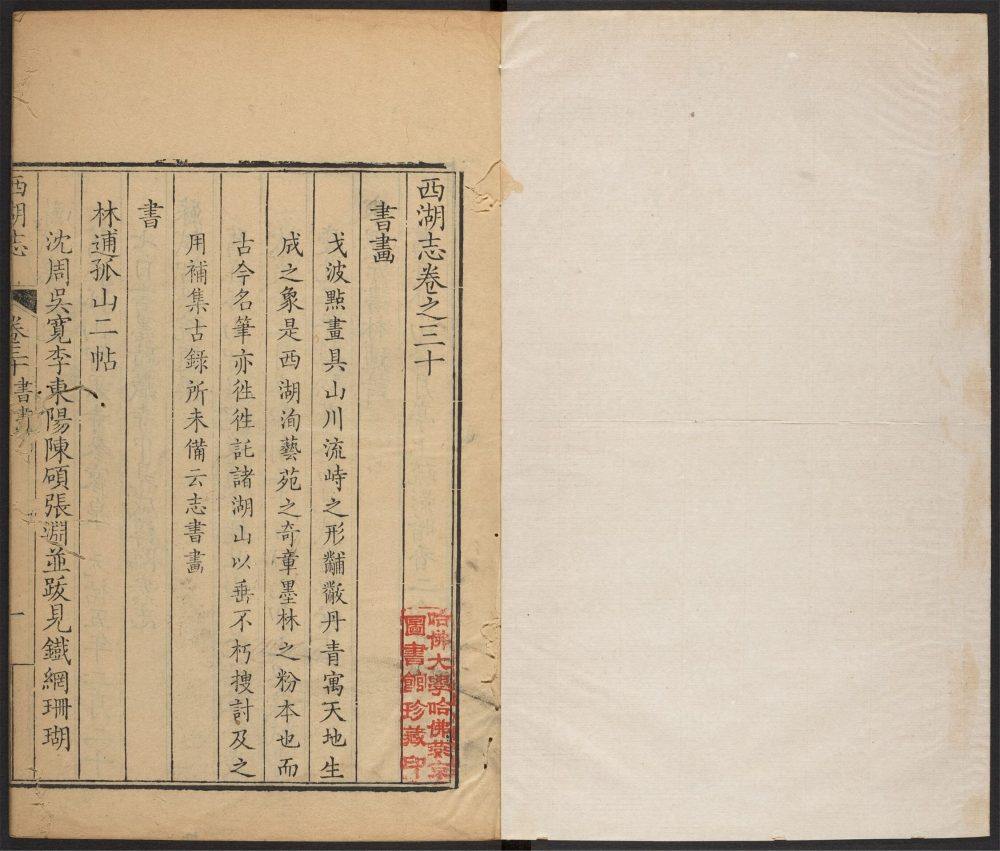 西湖志卷之三十
書畫
戈波㸃畫具山川流峙之形黼黻丹青寓天地生
成之象是西湖洵藝苑之奇章墨林之粉本也而
古今名筆亦徃徃託諸湖山以垂不朽搜討及之
用補集古録所未備云志書畫
書
林逋孤山二帖
沈周吳寛李東陽陳頎張淵並跋見鐵網珊瑚
西湖志
卷三十 書畫
一
哈佛大學哈佛燕京
圖書館珍藏印